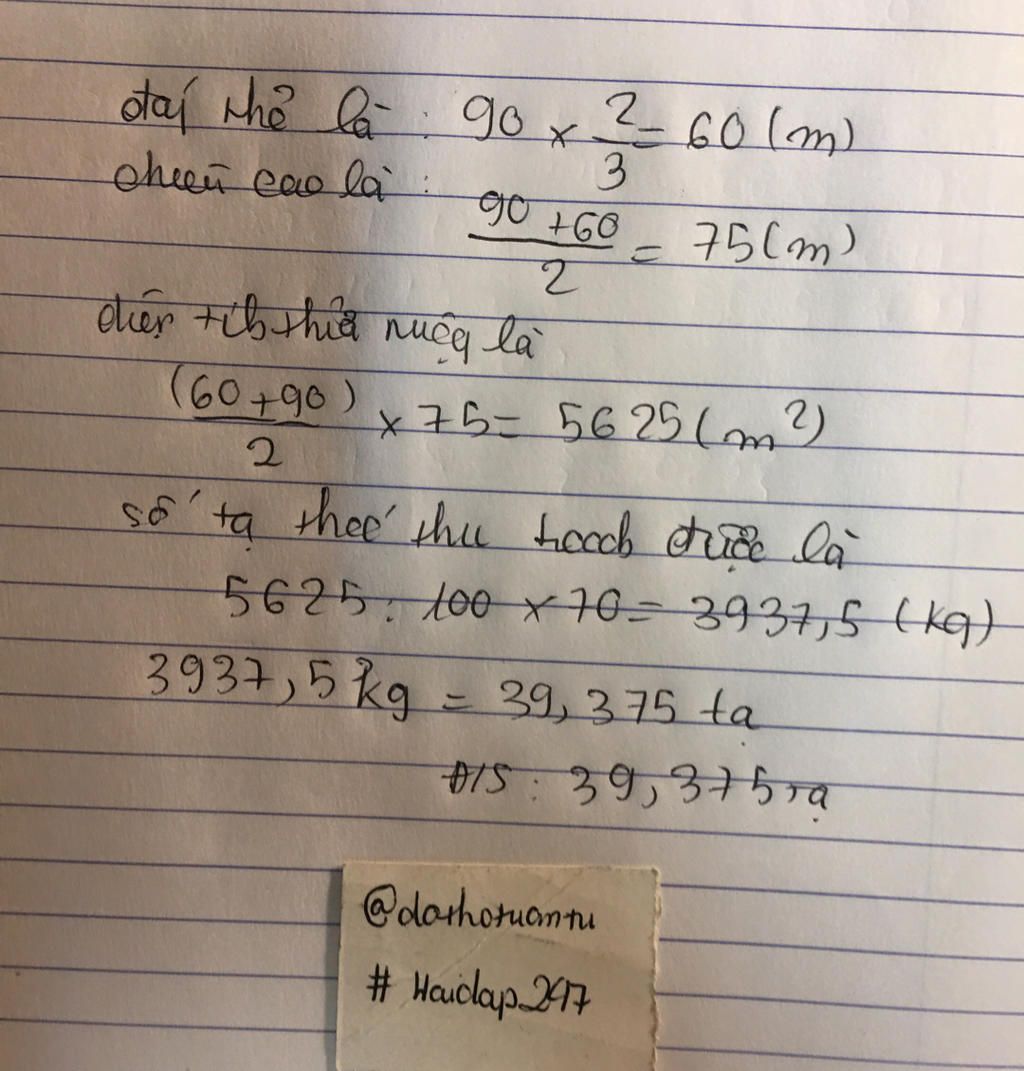 đaý nhỏ là : 90 × 2/3 = 60 (m)
chiều cao là :
(90 + 60)/2 = 75 (m)
diện tích thửa ruộng là
(60 + 90)/2 × 75 = 5625 (m²)
số tạ thóc thu hoạch được là
5625 : 100 × 70 = 3937,5 (kg)
3937,5 kg = 39,375 tạ
Đ/S : 39,375 tạ
@dathotuantu
# Hoidap_247